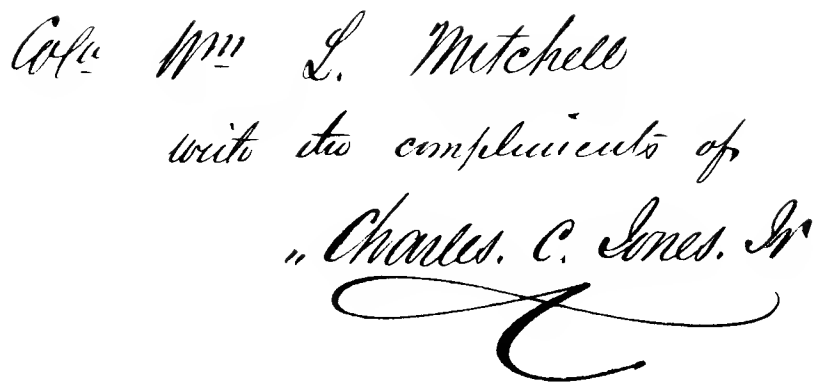 Coln Wm L. Mitchell
with the compliments of
„ Charles. C. Jones. Jr